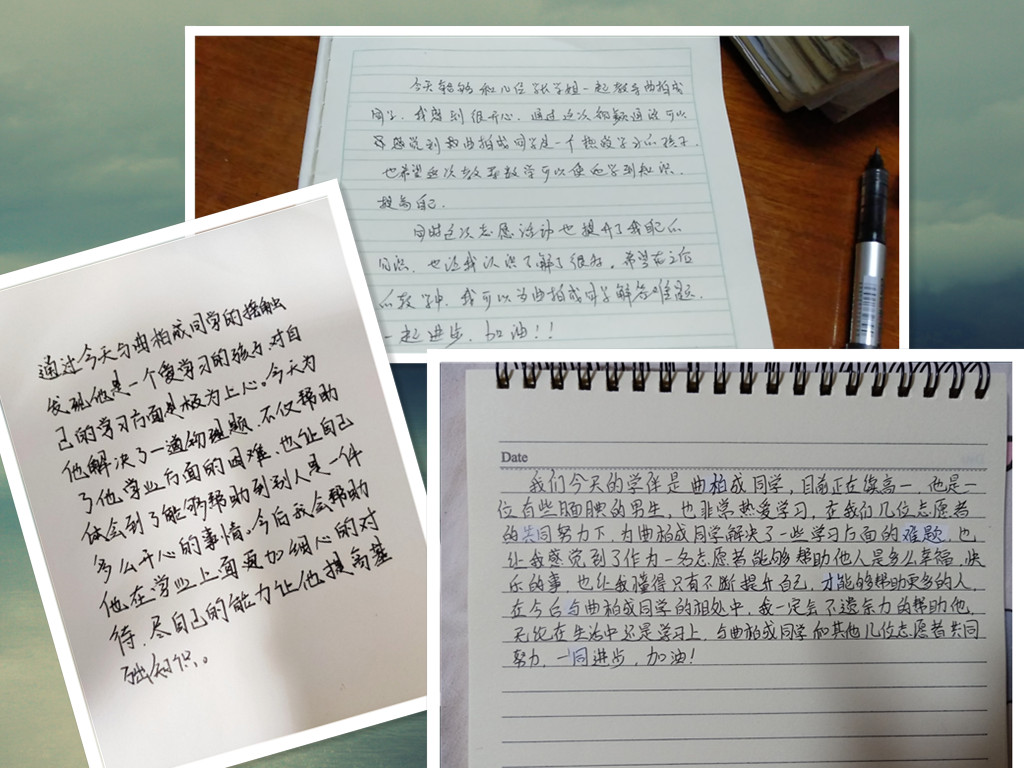 今天能够和几位学长学姐一起教导曲柏成
同学，我感到很开心，通过这次视频通话可以
感觉到曲柏成同学是一个热爱学习的孩子，
也希望这次教导教学可以使他学到知识，
提高自己。
同时这次志愿活动也提升了我自己的
知识，也让我认识了解了很多。希望在之后
的教学中，我可以为曲柏成同学解答难题，
一起进步，加油！！
通过今天与曲柏成同学的接触
发现他是一个爱学习的孩子，对自
己的学习方面是极为上心。今天为
他解决了一道物理题，不仅帮助
了他学业方面的困难，也让自己
体会到了能够帮助到别人是一件
多么开心的事情。今后我会帮助
他在学业上面更加细心的对
待，尽自己的能力让他提高基
础知识。
Date
我们今天的学伴是曲柏成同学，目前正在读高一，他是一
位有些腼腆的男生，也非常热爱学习，在我们几位志愿者
的共同努力下，为曲柏成同学解决了一些学习方面的难题，也
让我感觉到了作为一名志愿者能够帮助他人是多么幸福，快
乐的事，也让我懂得只有不断提升自己，才能够帮助更多的人，
在今后与曲柏成同学的相处中，我一定会不遗余力的帮助他，
无论在生活中还是学习上，与曲柏成同学和其他几位志愿者共同
努力，一同进步，加油！